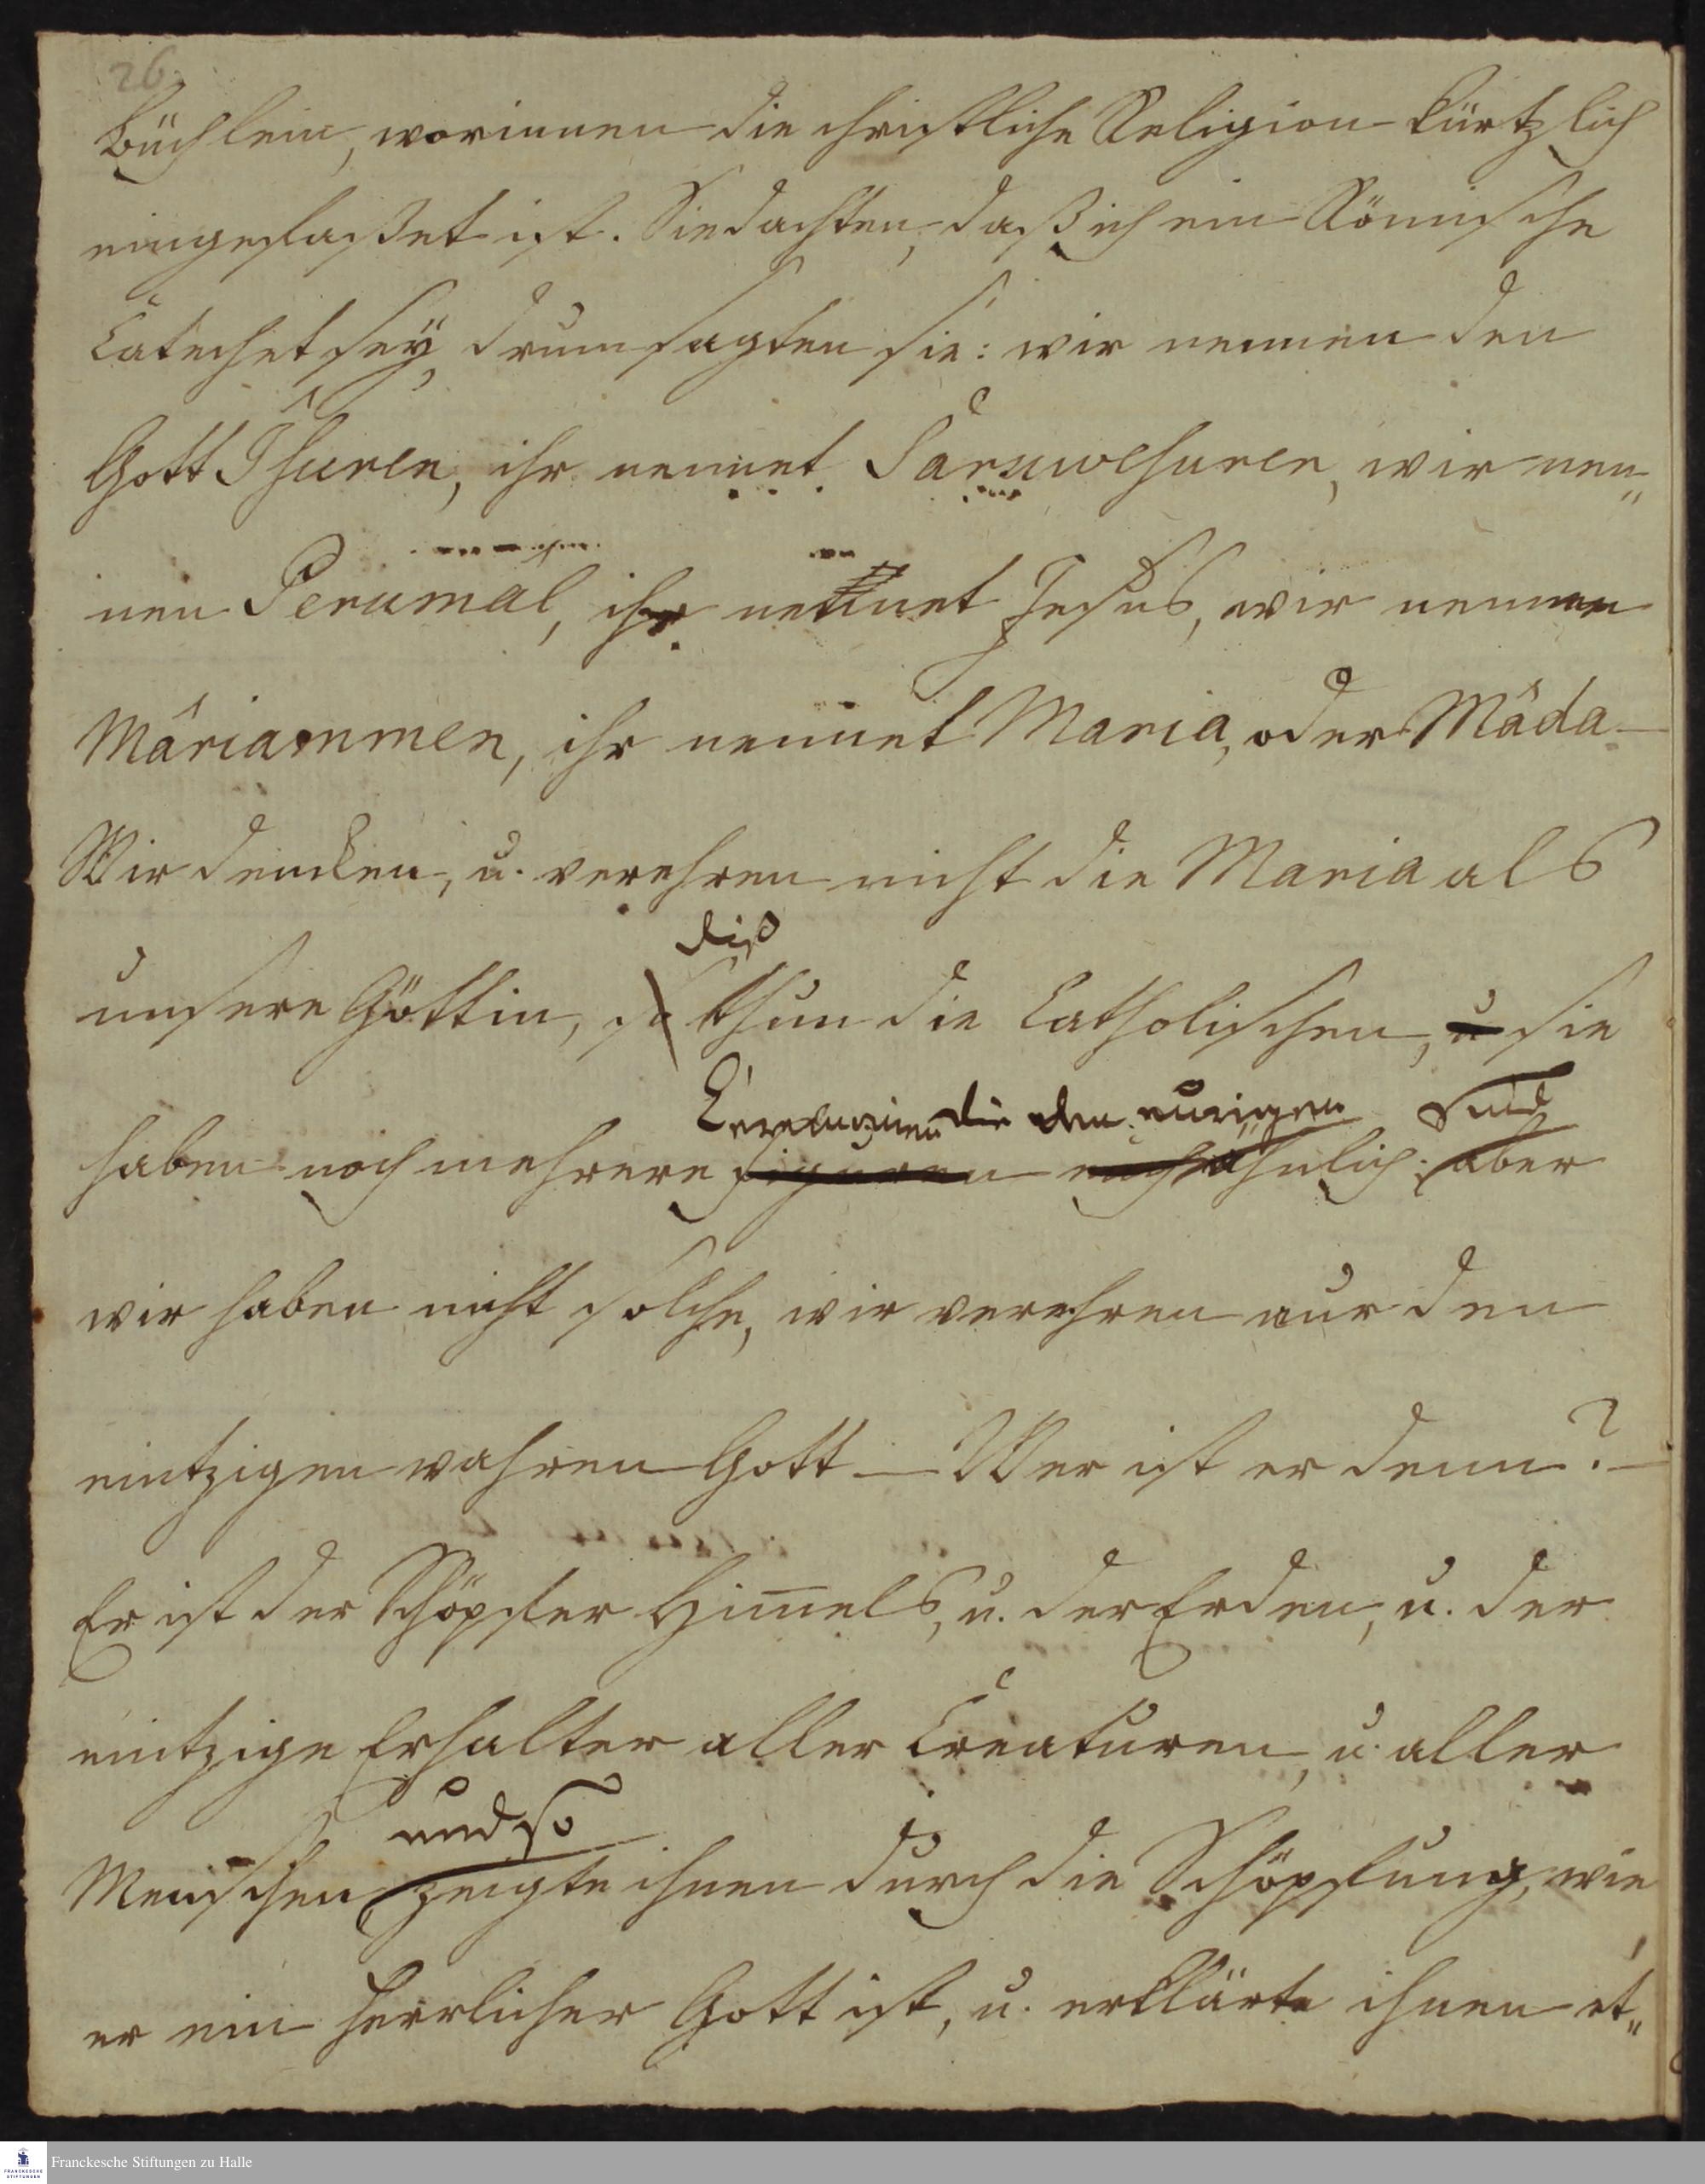 26.
Büchlein, worinnen die christliche Religion kürtzlich
eingefaßet ist. Sie dachten, daß ich ein Römische
Catechet sey, drum sagten sie: wir nennen den
Gott Ishuren, ihr nennet Saruweshuren, wir nen„
nen Perumal, ihr nennet Jesus, wir nennen
Mâriammen, ihr nennet Maria, oder Mâda—
Wir dencken, u. verehren nicht die Maria als
diß
unsere Göttin, so thun die Catholischen, u sie
Ceremonien die den eurigen sind
haben noch mehrere figuren euch ähnlich. aber
wir haben nicht solche, wir verehren nur den
eintzigen wahren Gott — Wer ist er denn? —
Er ist der Schöpffer Him̅els, u. der Erden, u. der
eintzige Erhalter aller Creaturen, u. aller
und so
Menschen, zeigte ihnen durch die Schöpffung, wie
er ein herrlicher Gott ist, u. erklärte ihnen et„
Franckesche Stiftungen zu Halle